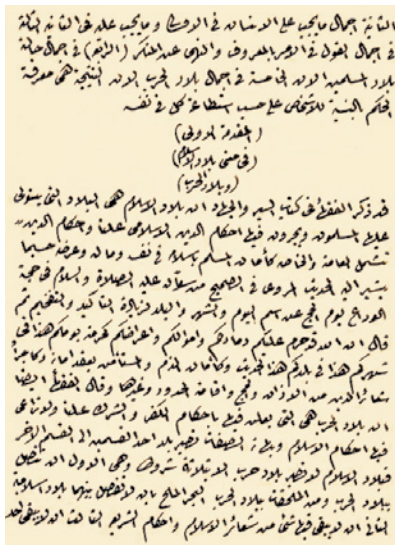 الثانية اجمال ما يجب على الانسان في الاوطان وما يجب عليه في الثانية الثالثة
في اجمال القول في الامر بالمعروف والنهي عن المنكر (الرابع) في اجمال حالة
بلاد المسلمين الان الخامسة في اجمال بلاد الحرب الان النتيجة هي معرفة
الحكم للاشخاص على حسب استطاعة كل في نفسه
(المقدمة الاولى)
(في معنى بلاد الاسلام)
(وبلاد الحرب)
قد ذكر الفقهاء في كتاب السير والجهاد ان بلاد الاسلام هي البلاد التي يستولي
عليها المسلمون ويجرون فيها احكام الدين الاسلامي علنا واحكام الدين
تشمل العامة والخاصة كأمان المسلم بالاسلام في نفسه وماله وعرضه حسبما
يشير اليه الحديث المروي في الصحيح من سؤاله عليه الصلاة والسلام في حجة
الوداع يوم الحج عن اسم اليوم والشهر والبلد لزيادة التأكيد والتفخيم ثم
قال ان الله قد حرم عليكم دماءكم واموالكم واعراضكم كحرمة يومكم هذا في
شهركم هذا في بلدكم هذا الحديث وكأمان الذمي والمستأمن بعقد امانه وكاجراء
شعائر الدين من الاذان والحج واقامة الحدود وغيرها وقال الفقهاء ايضا
ان بلاد الحرب هي التي يعلن فيها باحكام الكفر والشرك علنا ولا تراعى
فيها احكام الاسلام وبهذه الصفات تصير بلاد احد القسمين الى القسم الاخر
فبلاد الاسلام لا تصير بلاد حرب الا بثلاثة شروط وهي الاول ان تتصل
ببلاد الحرب ومن الملحقات ببلاد الحرب البحر الملح بان لا تفصل بينهما بلاد اسلامية
الثاني ان لا يبقى فيها شيء من شعائر الاسلام واحكام الشريعة الثالث ان لا يبقى احد